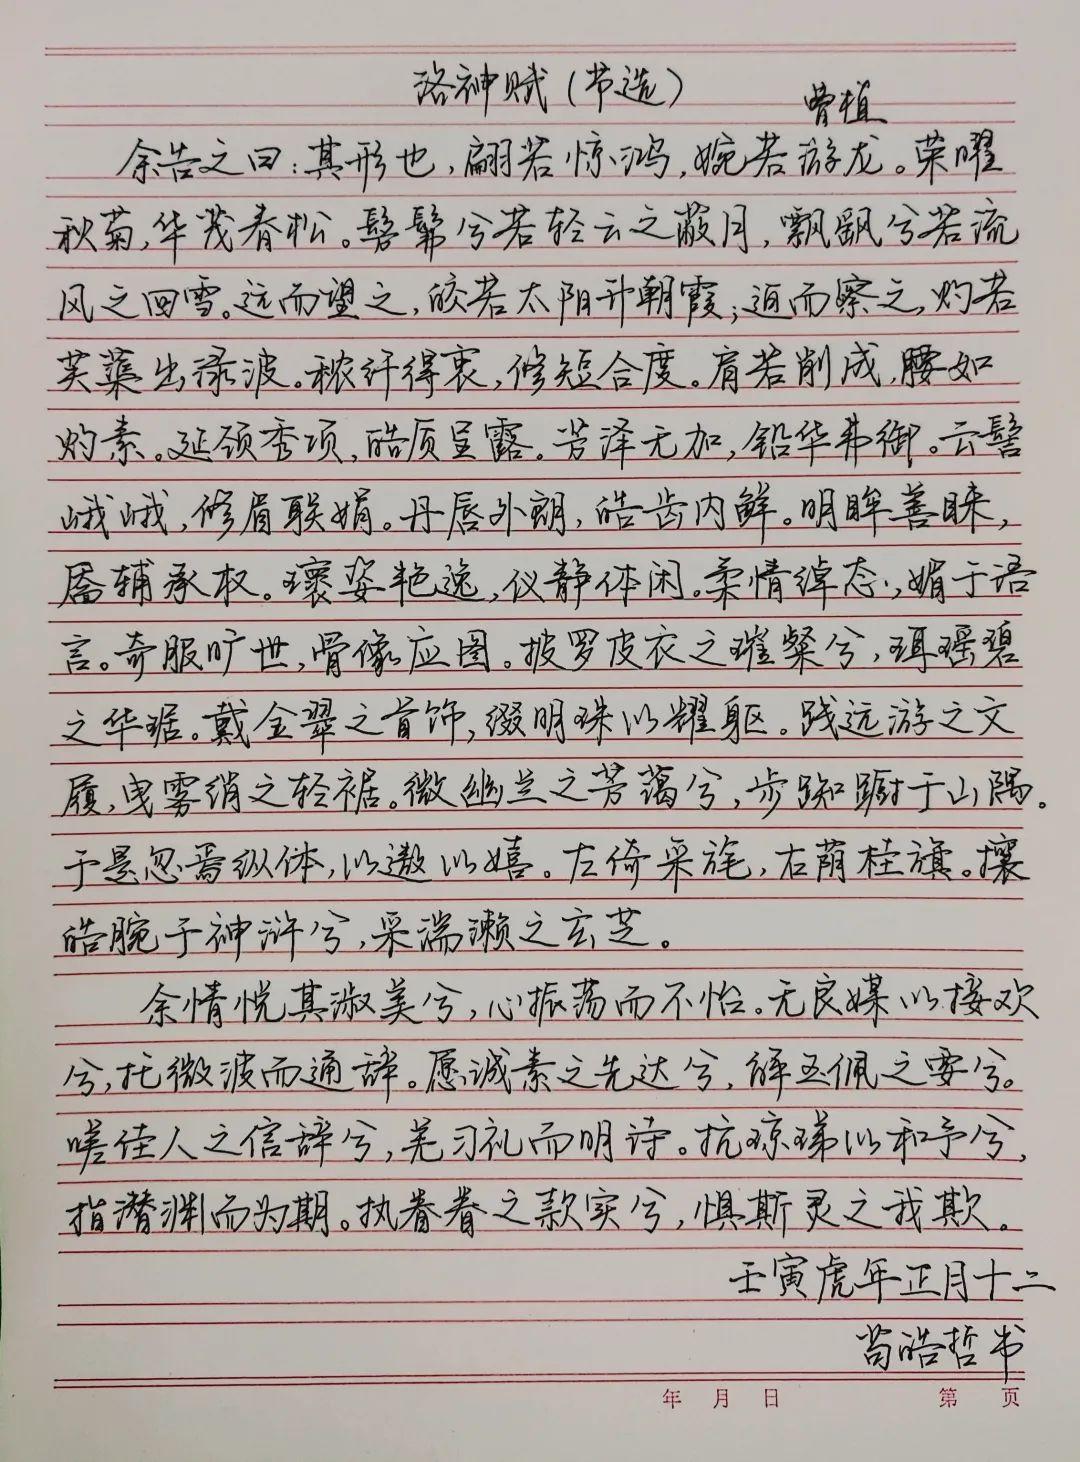 洛神赋(节选)
曹植
余告之曰:其形也,翩若惊鸿,婉若游龙。荣曜
秋菊,华茂春松。髣髴兮若轻云之蔽月,飘飖兮若流
风之回雪。远而望之,皎若太阳升朝霞;迫而察之,灼若
芙蕖出渌波。秾纤得衷,修短合度。肩若削成,腰如
灼素。延颈秀项,皓质呈露。芳泽无加,铅华弗御。云髻
峨峨,修眉联娟。丹唇外朗,皓齿内鲜。明眸善睐,
靥辅承权。瓌姿艳逸,仪静体闲。柔情绰态,媚于语
言。奇服旷世,骨像应图。披罗皮衣之璀粲兮,珥瑶碧
之华琚。戴金翠之首饰,缀明珠以耀躯。践远游之文
履,曳雾绡之轻裾。微幽兰之芳蔼兮,步踟蹰于山隅。
于是忽焉纵体,以遨以嬉。左倚采旄,右荫桂旗。攘
皓腕于神浒兮,采湍濑之玄芝。
余情悦其淑美兮,心振荡而不怡。无良媒以接欢
兮,托微波而通辞。愿诚素之先达兮,解玉佩之要兮。
嗟佳人之信辞兮,羌习礼而明诗。抗琼珶以和予兮,
指潜渊而为期。执眷眷之款实兮,惧斯灵之我欺。
壬寅虎年正月十二
苟皓哲书
年 月 日 第 页